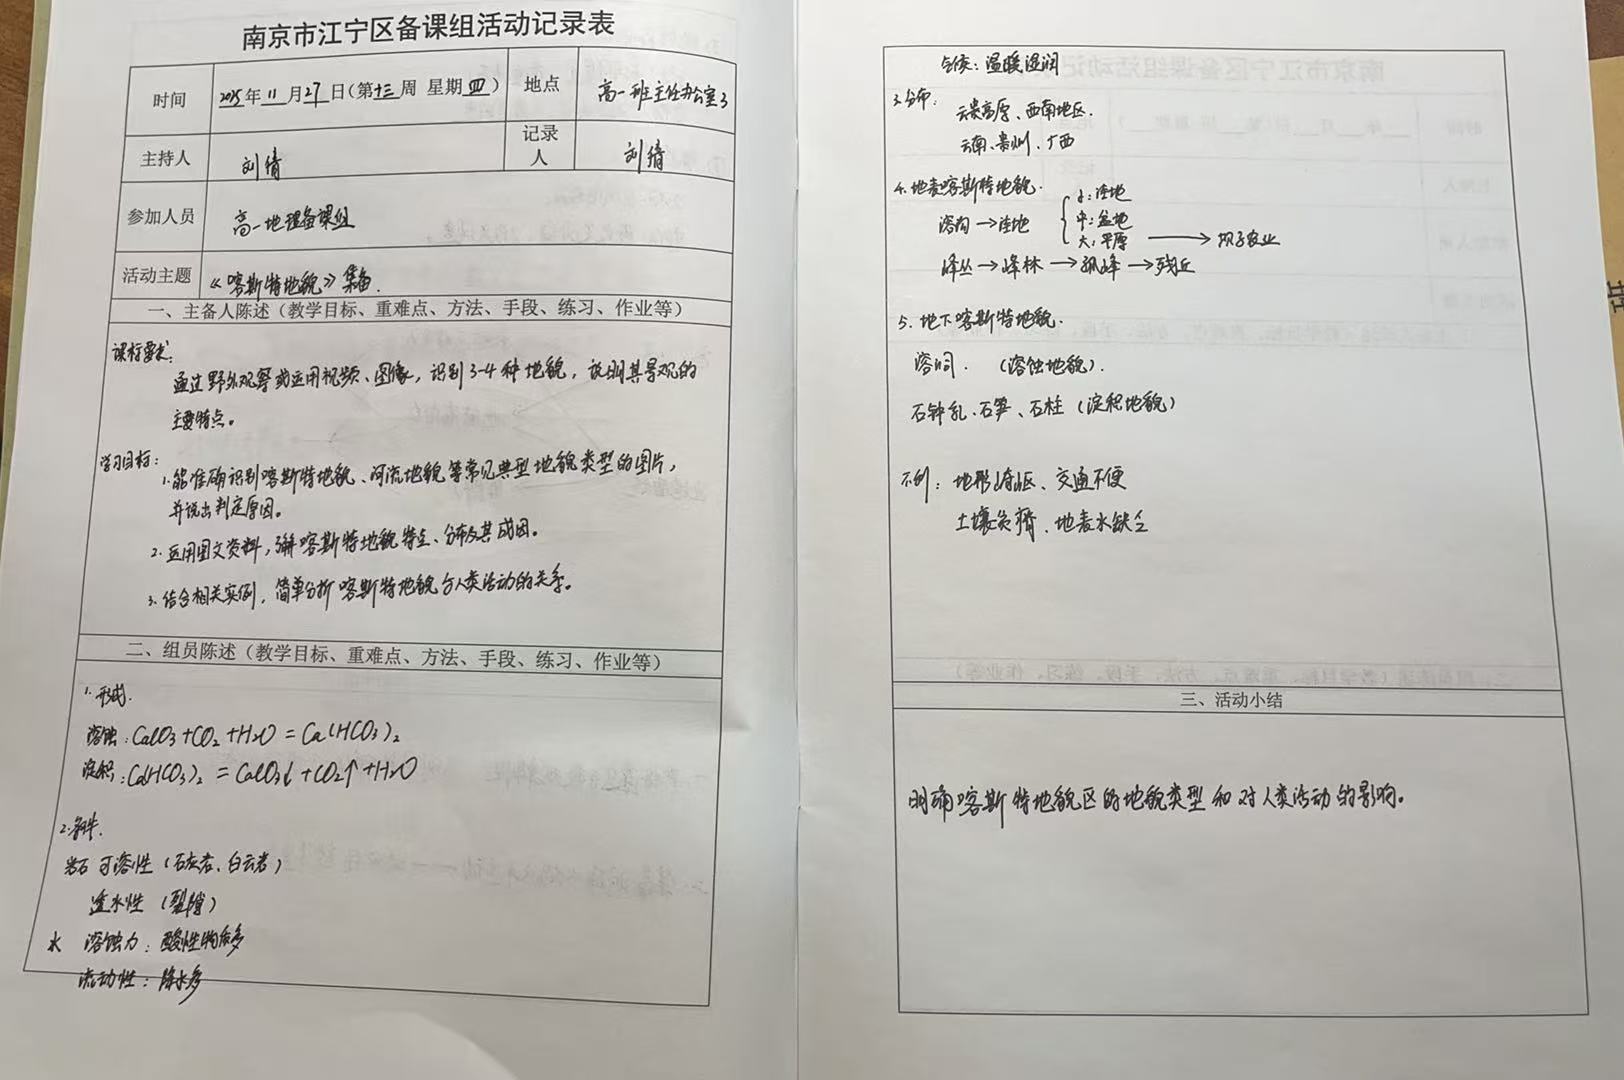 南京市江宁区备课组活动记录表
时间 2025年11月27日(第十三周 星期四) 地点 高一班主任办公室3
主持人 刘倩 记录人 刘倩
参加人员 高一地理备课组
活动主题 《喀斯特地貌》集备.
一、主备人陈述(教学目标、重难点、方法、手段、练习、作业等)
课标要求:
通过野外观察或运用视频、图像,识别3-4种地貌,说明其景观的
主要特点。
学习目标:
1.能准确识别喀斯特地貌、河流地貌等常见典型地貌类型的图片,
并说出判定原因。
2.运用图文资料,了解喀斯特地貌特点、分布及其成因。
3.结合相关实例,简单分析喀斯特地貌与人类活动的关系。
二、组员陈述(教学目标、重难点、方法、手段、练习、作业等)
1.形成.
溶蚀:CaCO3+CO2+H2O=Ca(HCO3)2
淀积:Ca(HCO3)2=CaCO3↓+CO2↑+H2O
2.条件.
岩石 可溶性(石灰岩、白云岩)
透水性(裂隙)
水 溶蚀力:酸性物质多
流动性:降水多
气候:温暖湿润
3.分布.
云贵高原、西南地区.
云南、贵州、广西
4.地表喀斯特地貌.
溶沟→洼地 { 小:洼地
中:盆地
大:平原 → 坝子农业
峰丛→峰林→孤峰→残丘
5.地下喀斯特地貌.
溶洞.(溶蚀地貌).
石钟乳、石笋、石柱(淀积地貌)
不利:地形崎岖、交通不便
土壤贫瘠、地表水缺乏
三、活动小结
明确喀斯特地貌区的地貌类型和对人类活动的影响。